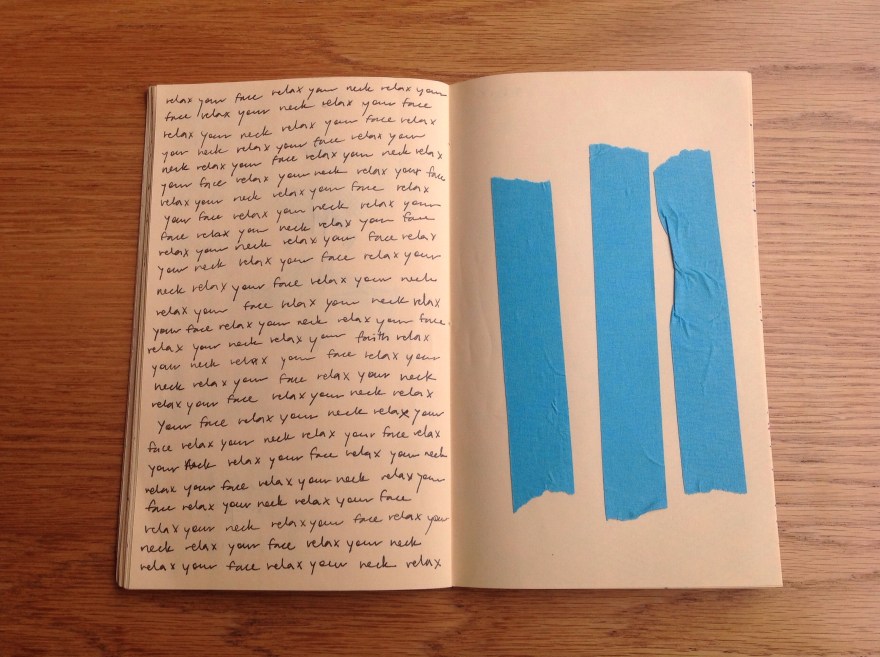 relax your face relax your neck relax your
face relax your neck relax your face
relax your neck relax your face relax
your neck relax your face relax your
neck relax your face relax your neck relax
your face relax your neck relax your face
relax your neck relax your face relax
your face relax your neck relax your
face relax your neck relax your face
relax your neck relax your face relax
your neck relax your face relax your
neck relax your face relax your neck
relax your face relax your neck relax
your face relax your neck relax your face
relax your neck relax your relax
your neck relax your face relax your
neck relax your face relax your neck
relax your face relax your neck relax
your face relax your neck relax your
face relax your neck relax your face relax
your neck relax your face relax your neck
relax your face relax your neck relax your
face relax your neck relax your face
relax your neck relax your face relax your
neck relax your face relax your neck
relax your face relax your neck relax